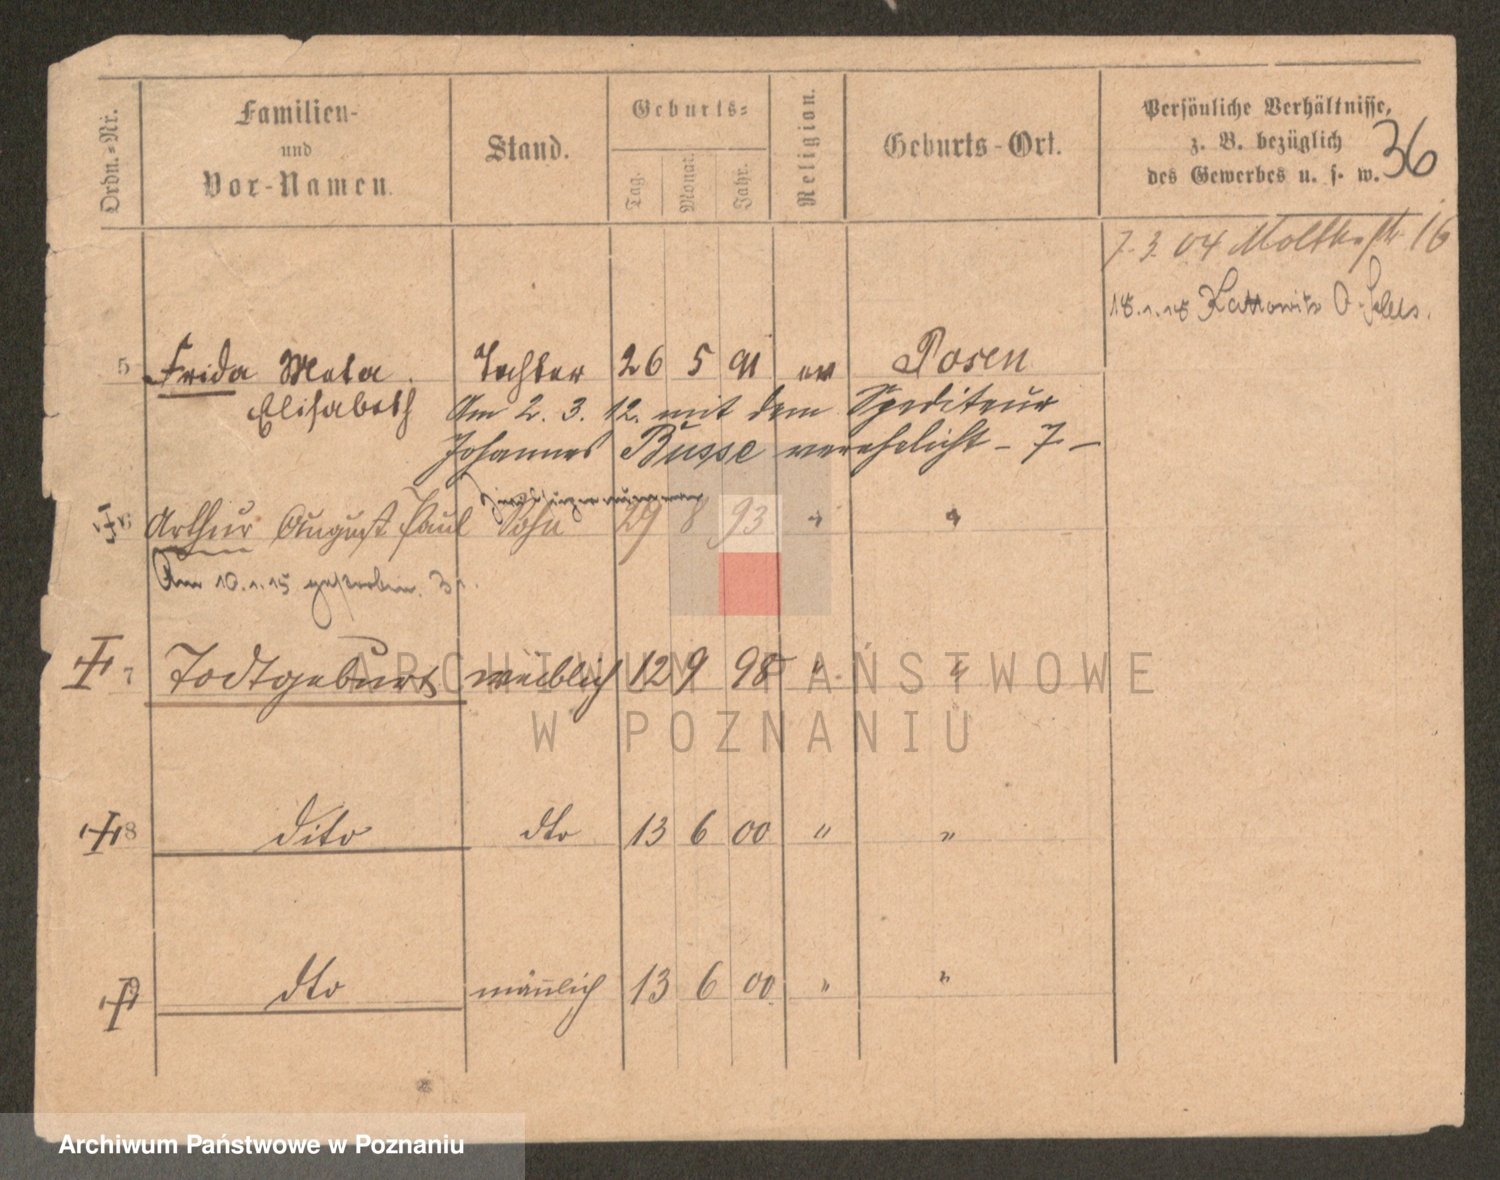 Ordn.-Nr.
Familien-
und
Vor-Namen.
Stand.
Geburts-
Tag.
Monat.
Jahr.
Religion.
Geburts-Ort.
Persönliche Verhältnisse,
z. B. bezüglich
des Gewerbes u. s. w.
36
7.3.04 Moltkestr 16
18.1.18 Kattowitz O.-Schles.
5 Frida Meta Tochter 26 5 91 ev Posen
Elisabeth Am 2. 3. 12. mit dem Spediteur
Johannes Busse verehelicht - 7 -
6 Arthur August Paul Sohn 29 8 93 " "
Am 10.1.15 gestorben.
7 Todtgeburt weiblich 12 9 98 " "
8 dito dto 13 6 00 " "
9 dto männlich 13 6 00 " "
ARCHIWUM PAŃSTWOWE
W POZNANIU
Archiwum Państwowe w Poznaniu